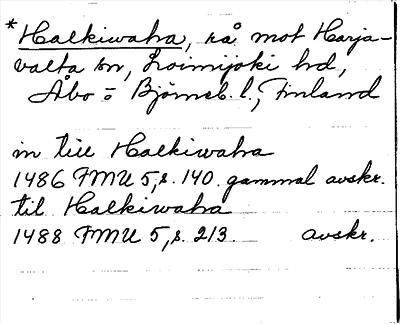 *Halkiwaha, rå mot Harja-
valta sn, Loimijoki hd,
Åbo- o Björneb. l., Finland
in till Halkiwaha
1486 FMU 5, s. 140. gammal avskr.
til Halkiwaha
1488 FMU 5, s. 213. avskr.